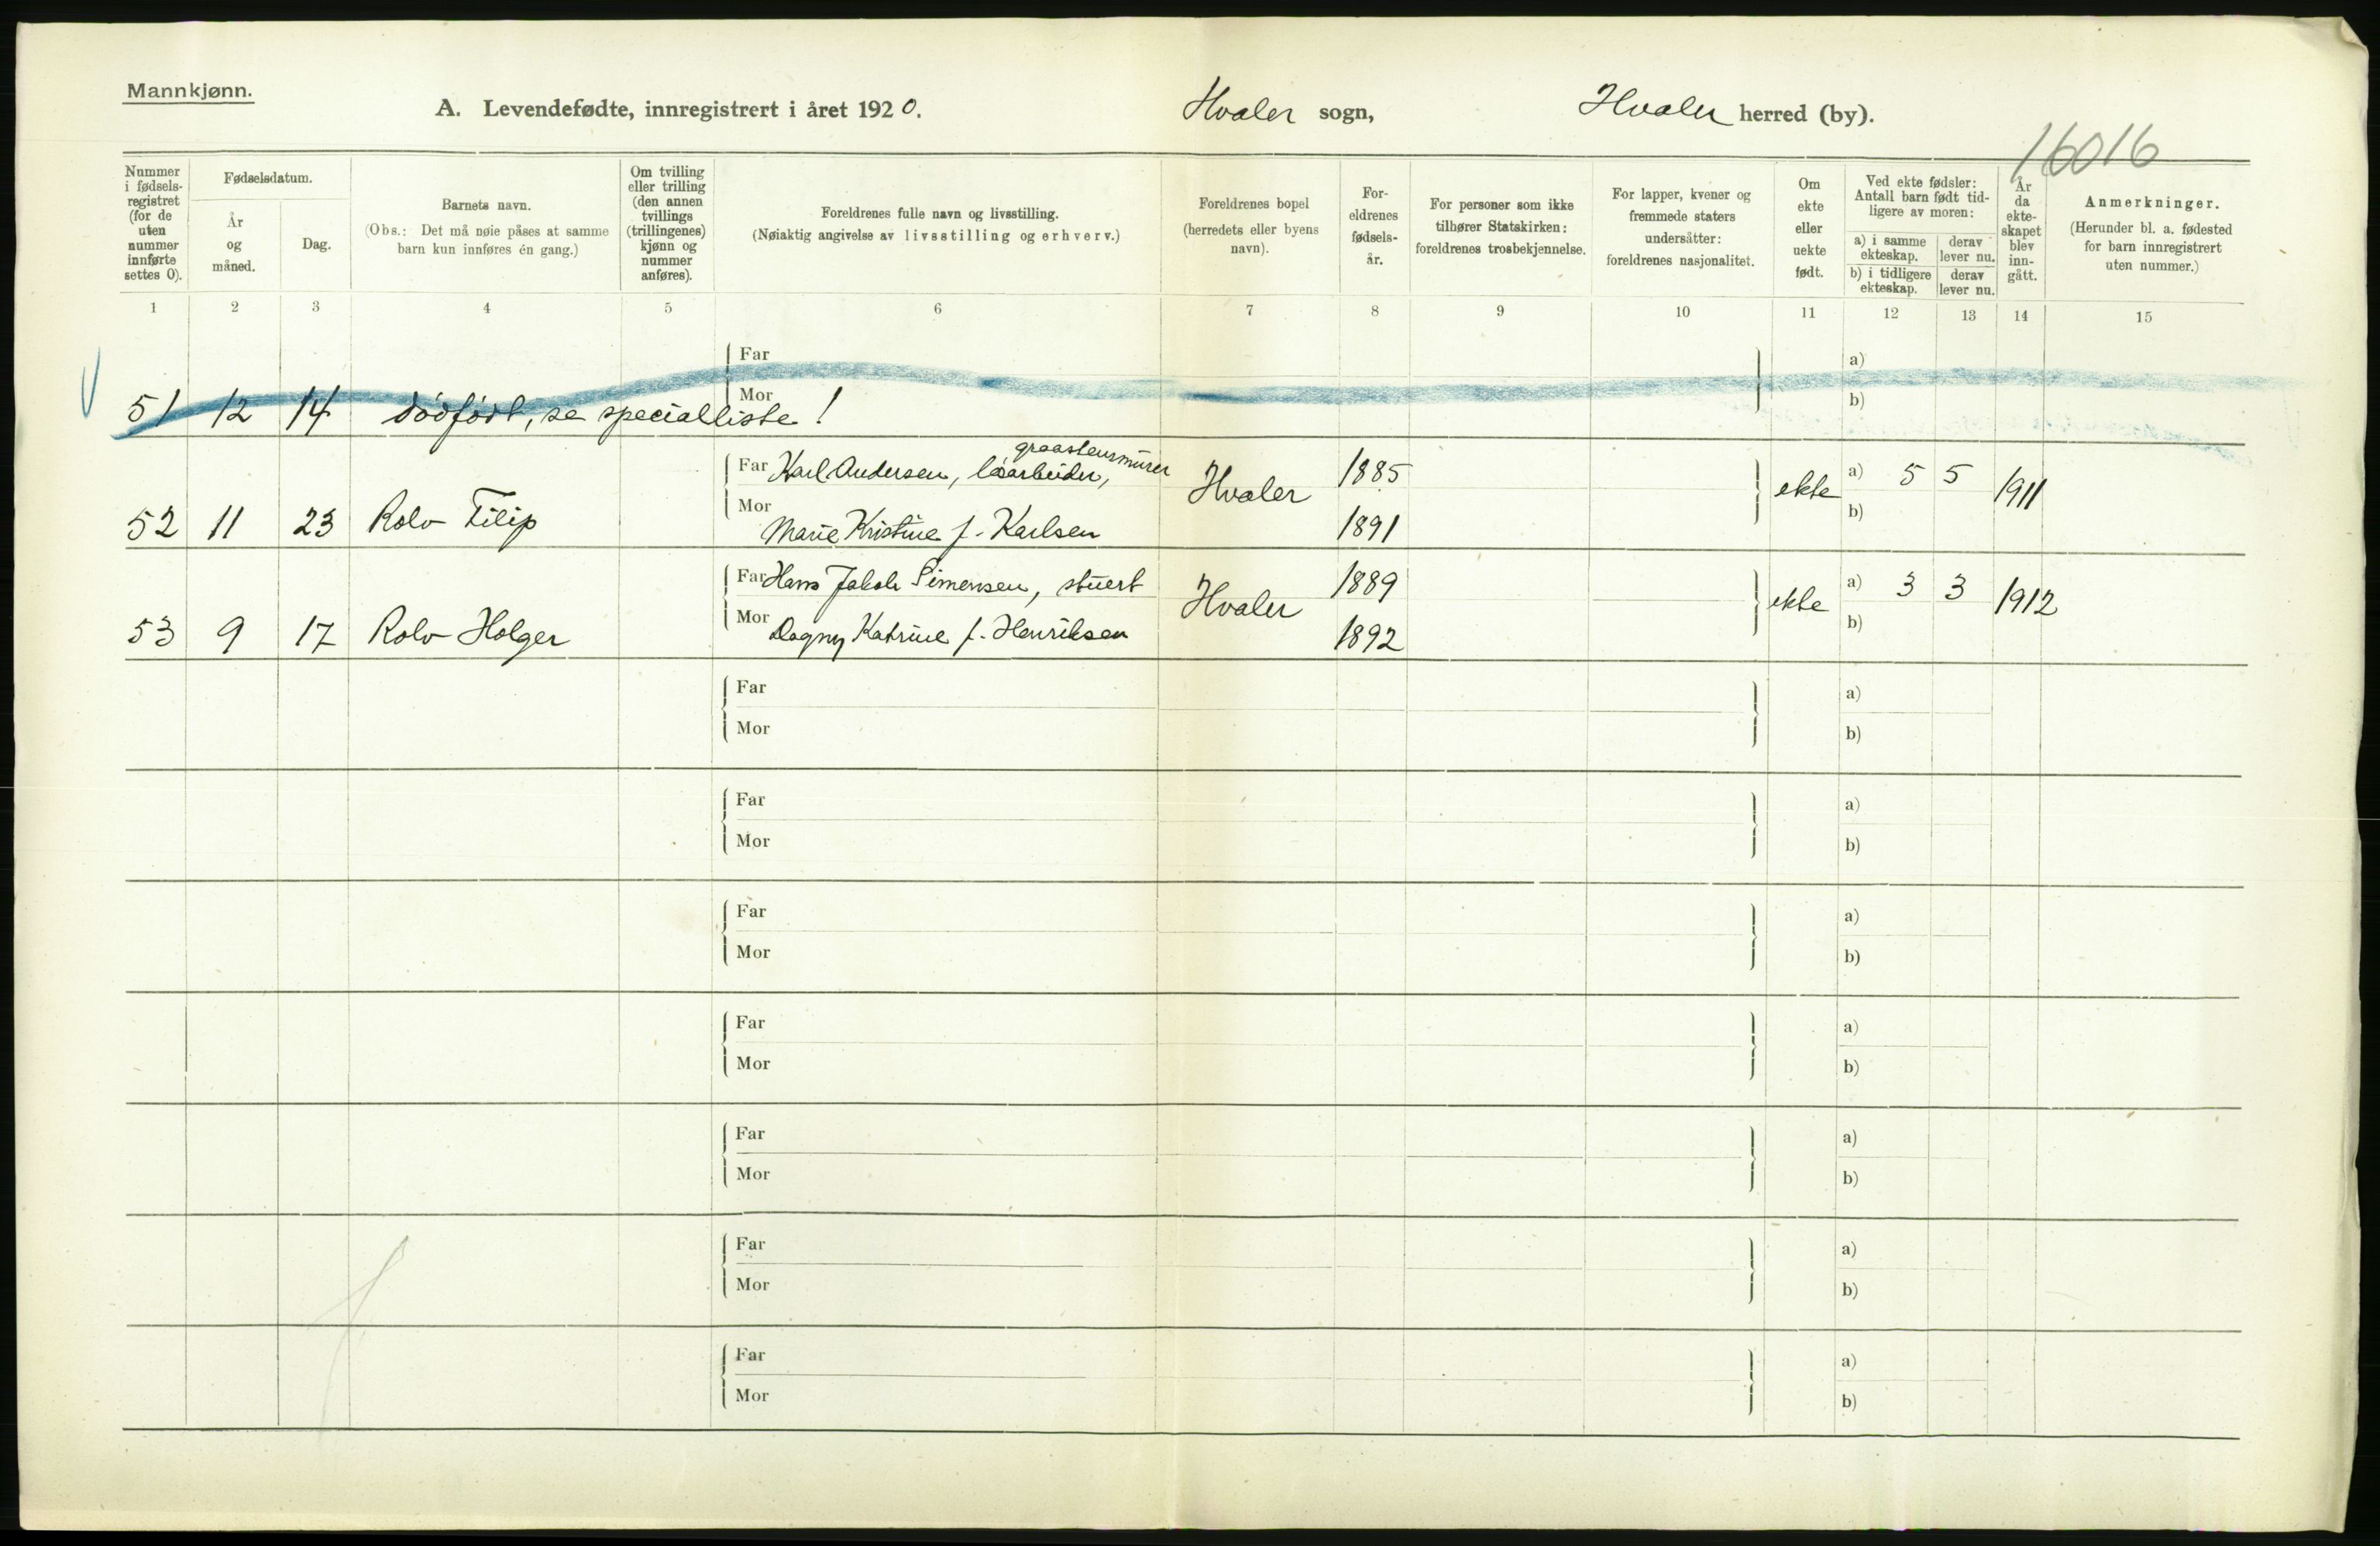 Mannkjønn.
A. Levendefødte, innregistrert i året 1920. Hvaler sogn, Hvaler herred (by).
16016
Nummer i fødselsregistret (for de uten nummer innførte settes 0).
Fødselsdatum.
År og måned.
Dag.
Barnets navn.
(Obs.: Det må nøie påses at samme barn kun innføres én gang.)
Om tvilling eller trilling (den annen tvillings (trillingenes) kjønn og nummer anføres).
Foreldrenes fulle navn og livsstilling.
(Nøiaktig angivelse av livsstilling og erhverv.)
Foreldrenes bopel (herredets eller byens navn).
Foreldrenes fødselsår.
For personer som ikke tilhører Statskirken: foreldrenes trosbekjennelse.
For lapper, kvener og fremmede staters undersåtter: foreldrenes nasjonalitet.
Om ekte eller uekte født.
Ved ekte fødsler: Antall barn født tidligere av moren:
a) i samme ekteskap. derav lever nu.
b) i tidligere ekteskap. derav lever nu.
År da ekteskapet blev inngått.
Anmerkninger.
(Herunder bl. a. fødested for barn innregistrert uten nummer.)
1 2 3 4 5 6 7 8 9 10 11 12 13 14 15
Far a)
Mor b)
51 12 14 dødfødt, se specialliste!
graastensmurer
Far Karl Andersen, løsarbeider, Hvaler 1885 ekte a) 5 5 1911
52 11 23 Rolv Filip Mor Marie Kristine f. Karlsen 1891 b)
Far Hans Jakob Simensen, stuert Hvaler 1889 ekte a) 3 3 1912
53 9 17 Rolv Holger Mor Dagny Katrine f. Henriksen 1892 b)
Far a)
Mor b)
Far a)
Mor b)
Far a)
Mor b)
Far a)
Mor b)
Far a)
Mor b)
Far a)
Mor b)
Far a)
Mor b)